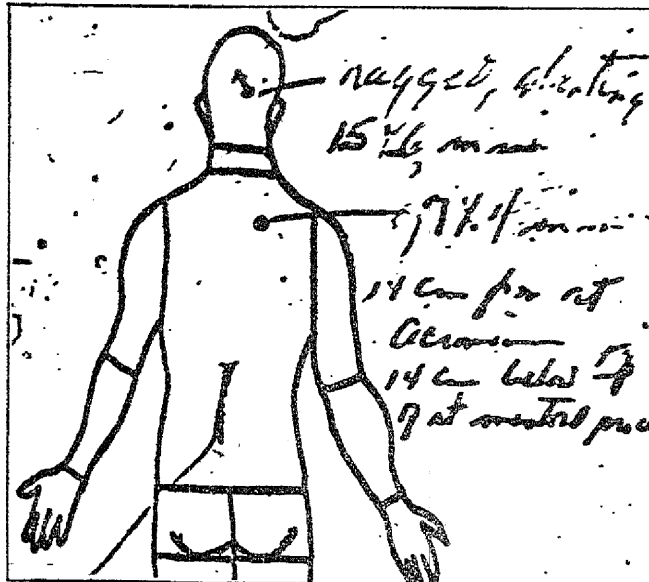 ragged, slanting
15 x 6 mm
7 x 4 mm
14 cm from rt
acromion
14 cm below tip
of rt mastoid proc